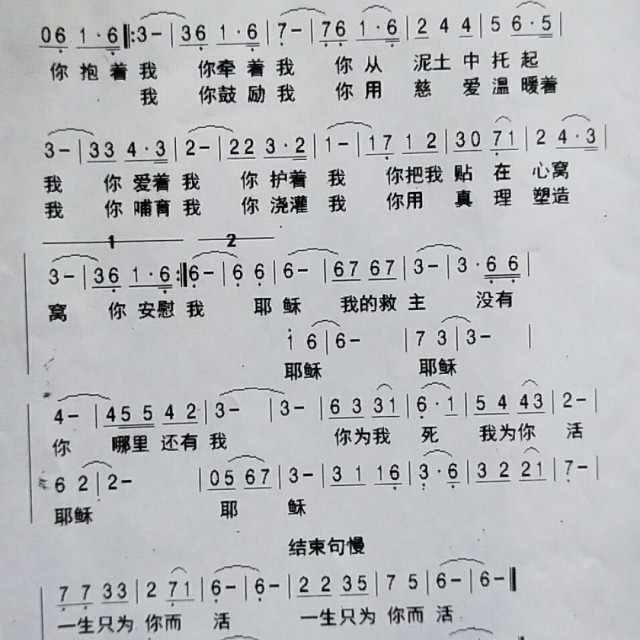 06 1·6 3- 36 1·6 7- 76 1·6 2 4 4 5 6·5
你 抱 着 我 你牵 着 我 你 从 泥土 中 托 起
我 你鼓 励 我 你 用 慈 爱 温 暖着
3- 33 4·3 2- 22 3·2 1- 17 1 2 30 71 2 4·3
我 你 爱着 我 你 护着 我 你把我 贴 在 心窝
我 你 哺育 我 你 浇灌 我 你用 真 理 塑造
1 2
3- 36 1·6 6- 6 6 6- 67 67 3- 3·66
窝 你 安慰 我 耶 稣 我的 救 主 没有
1 6 6- 7 3 3-
耶稣 耶稣
4- 455 4 2 3- 3- 6 3 31 6·1 5 4 43 2-
你 哪里 还有 我 你为我 死 我为你 活
6 2 2- 05 67 3- 3 1 16 3·6 3 2 21 7-
耶稣 耶 稣
结束句慢
7 7 33 2 71 6- 6- 2 2 35 7 5 6- 6-
一生只为 你而 活 一生只为 你而 活